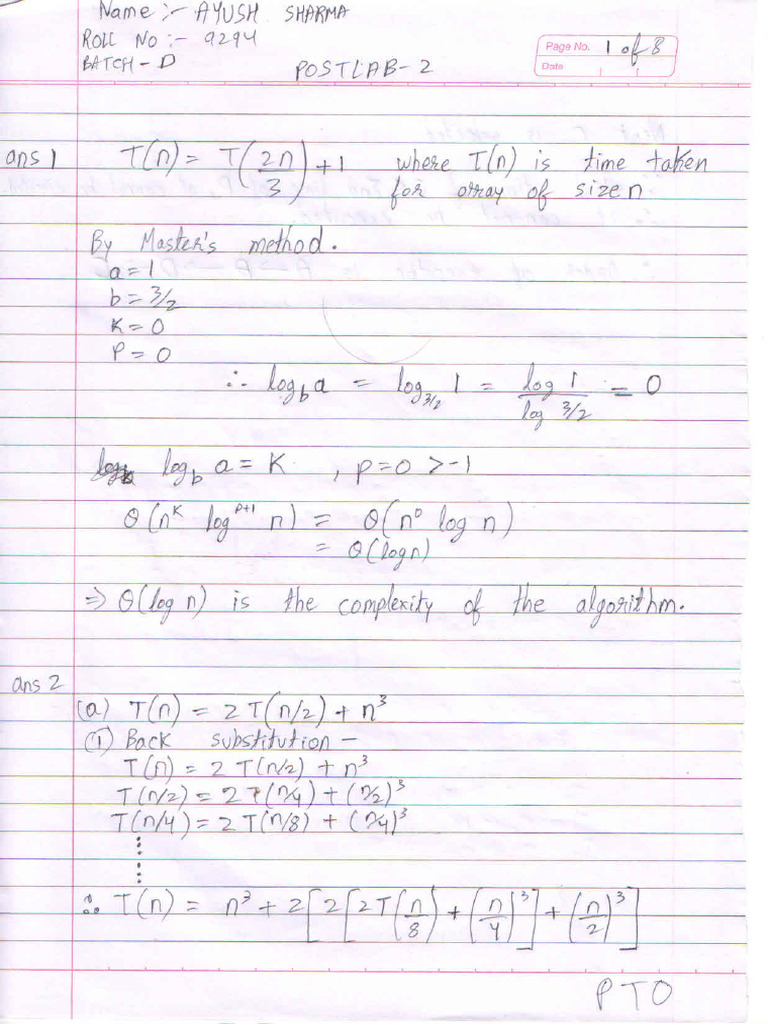 Name :- AYUSH SHARMA
ROLL NO :- 9294
BATCH - D
POSTLAB-2
Page No. 1 of 8
Date
ans 1 T(n) = T(2n/3) + 1 where T(n) is time taken
for array of size n
By Master's method.
a = 1
b = 3/2
K = 0
P = 0
∴ log_b a = log_{3/2} 1 = log 1 / log 3/2 = 0
log_b a = K , p = 0 > -1
θ(n^K log^{P+1} n) = θ(n^0 log n)
= θ(log n)
⇒ θ(log n) is the complexity of the algorithm.
ans 2
(a) T(n) = 2T(n/2) + n^3
(1) Back substitution -
T(n) = 2T(n/2) + n^3
T(n/2) = 2T(n/4) + (n/2)^3
T(n/4) = 2T(n/8) + (n/4)^3
∴ T(n) = n^3 + 2[2[2T(n/8) + (n/4)^3] + (n/2)^3]
PTO